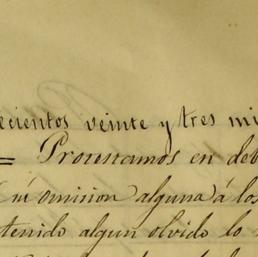 ecientos veinte y tres mi
= Prometamos en deb
ni omision alguna á los
tenido algun olvido lo